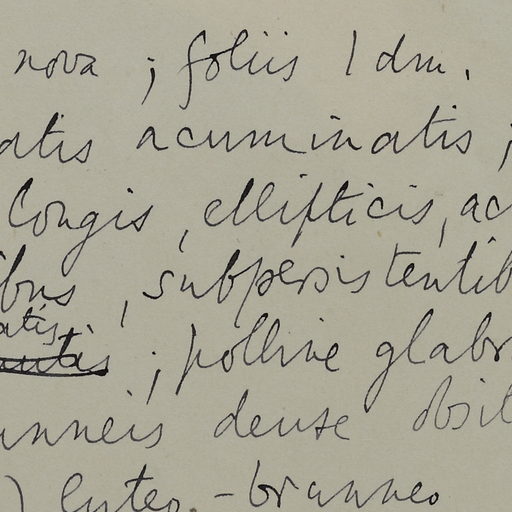 nova ; foliis 1 dm.
atis acuminatis ;
longis, ellipticis, ac
ibus, subpersistentib
atis
; polline glabr
unneis dense obsit
) luteo-brunneo